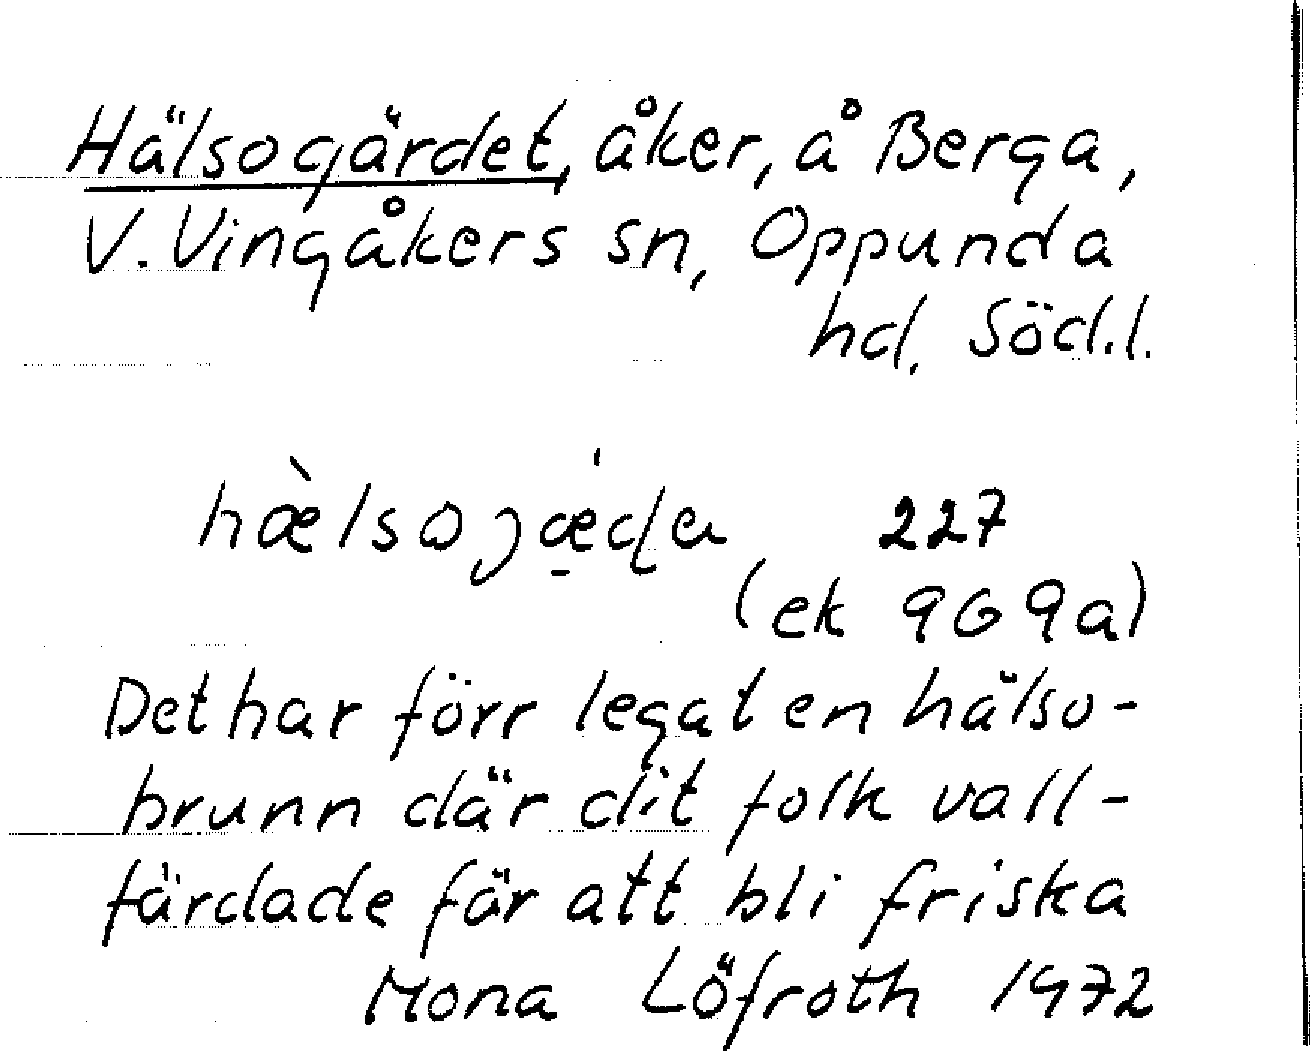 Hälsogärdet, åker, å Berga,
V. Vingåkers sn, Oppunda
hd. Söd.l.
hæ̀lsoȷǽ̠ɖa 227
(ek 969a)
Det har förr legat en hälso-
brunn där dit folk vall-
färdade för att bli friska
Mona Löfroth 1972